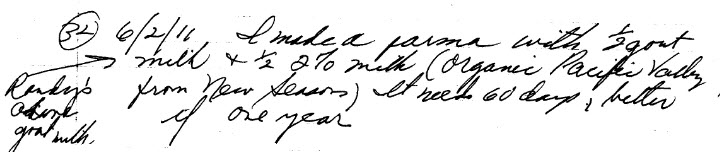 (32) 6/2/11 I made a parma with ½ goat
milk & ½ 2% milk (Organic Pacific Valley
from New Seasons) It needs 60 days, better
if one year
Randy's
goat milk.